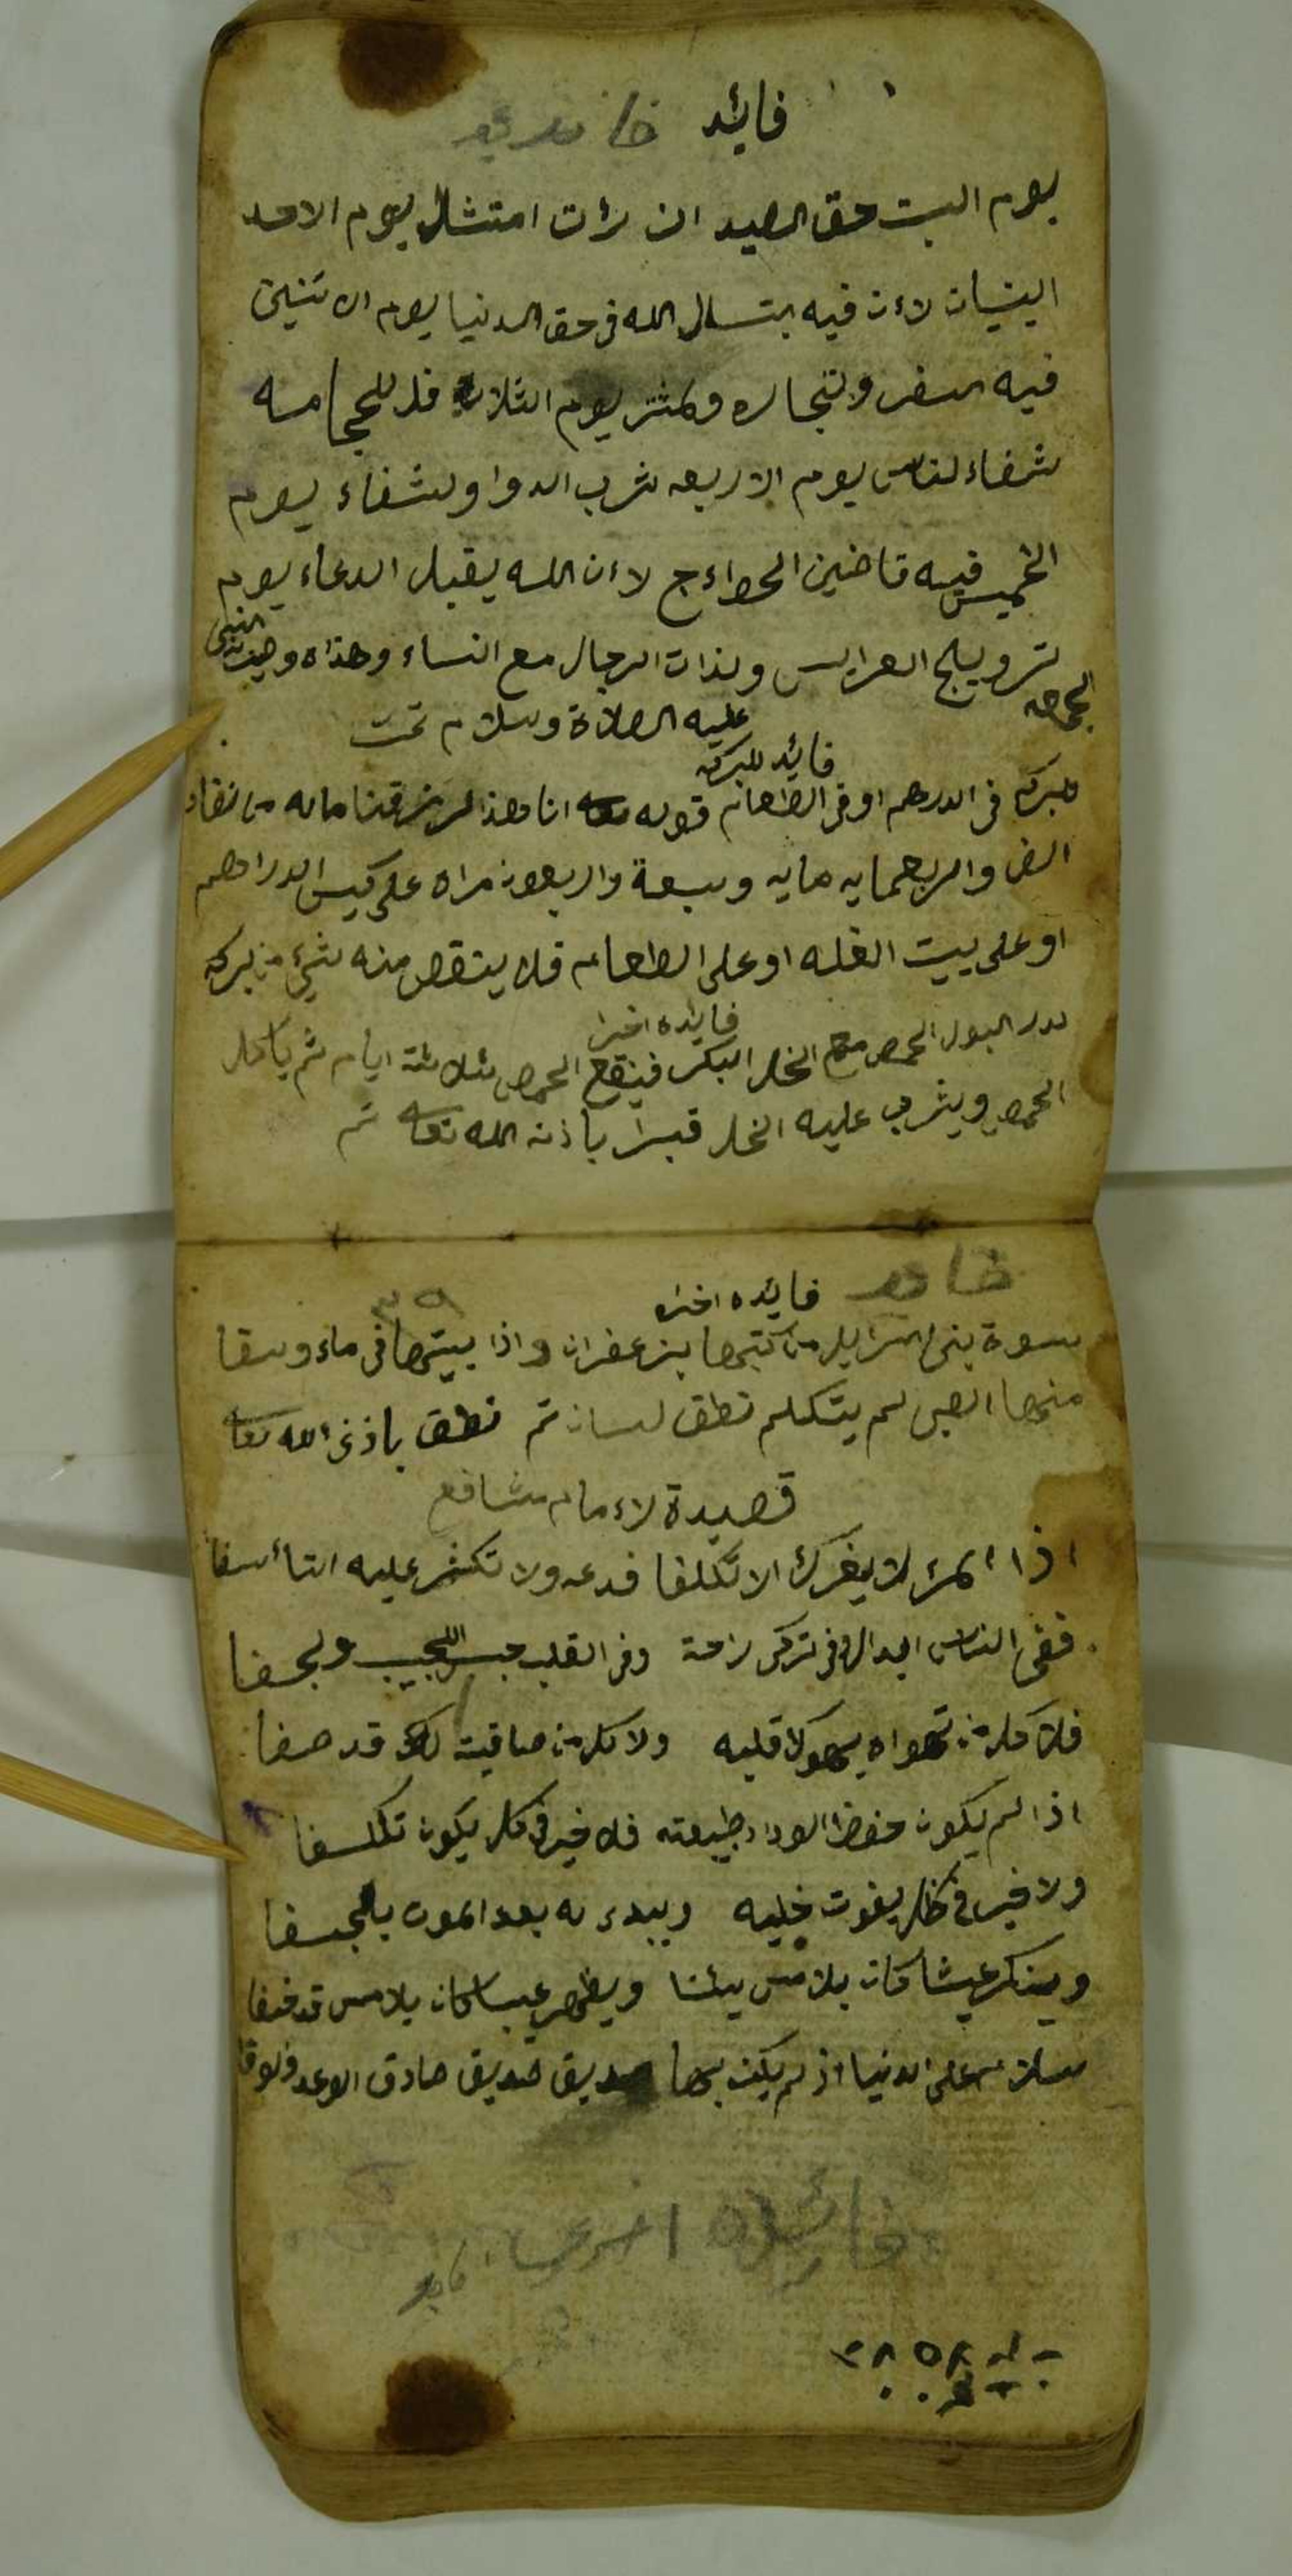 فايد
يوم البت حق الصيد ان رأت امتثال يوم الاحد
البنيان لاءن فيه بتسال الله في حق الدنيا يوم الاتنين
فيه السفر ولتجاره يوم الثلاث فلد للحجامه
شفاء لناس يوم الاربعه شرب الدوا ولشفاء يوم
الخميس فيه قاضين الحواءج لاءن الله يقبل الدعاء يوم
الجمعه تزويلج العرايس ولذات الرجال مع النساء وهذاه وصيت النبي
عليه الصلاة وسلام تمت
فايد للبركه
للبركه في الدرهم او في الطعام قوله تعا ان هذا لرزقنا ماله من نفاد
الف واربعمايه مايه وسبعة واربعون مراه على كيس الدراهم
او على بيت الغله او على الطعام فلا ينقص منه شيء من بركه
فايده اخرا
لدر البول الحمص مع الخل البكر فينقع الحمص ثلاثة ايام ثم ياكل
الحمص ويشرب عليه الخل قبرا باذن الله تعا تم
فايده اخراه
٣٩
سوة بني اسرايل من كتبها بزعفران واذا بيتها في ماء وسقا
منها الصبي لم يتكلم نطق لسان تم نطق باذن الله تعا
قصيدة لاءمام شافع
اذا المرء لا يغرك الا تكلفا فدعه ولا تكثر عليه التأسفا
ففي الناس ابدال وفي تركي راحة وفي القلب للحبيب ولجفا
فلا كل من تهواه يهوك قلبه ولا كل من صافيته لك قد صفا
اذا لم يكون حفظ الوداد طبيعته فلا خير في كل يكون تكلفا
ولا خير في خل يخون خليه ويبدء له بعد الموت بالجفا
وينكر عيشا كان بلامس بيئنا ويظهر عيبا كان بلامس قد خفا
سلام على الدنيا اذ لم يكن بها صديق صديق صادق الوعد ولوفا
فائده اخرى